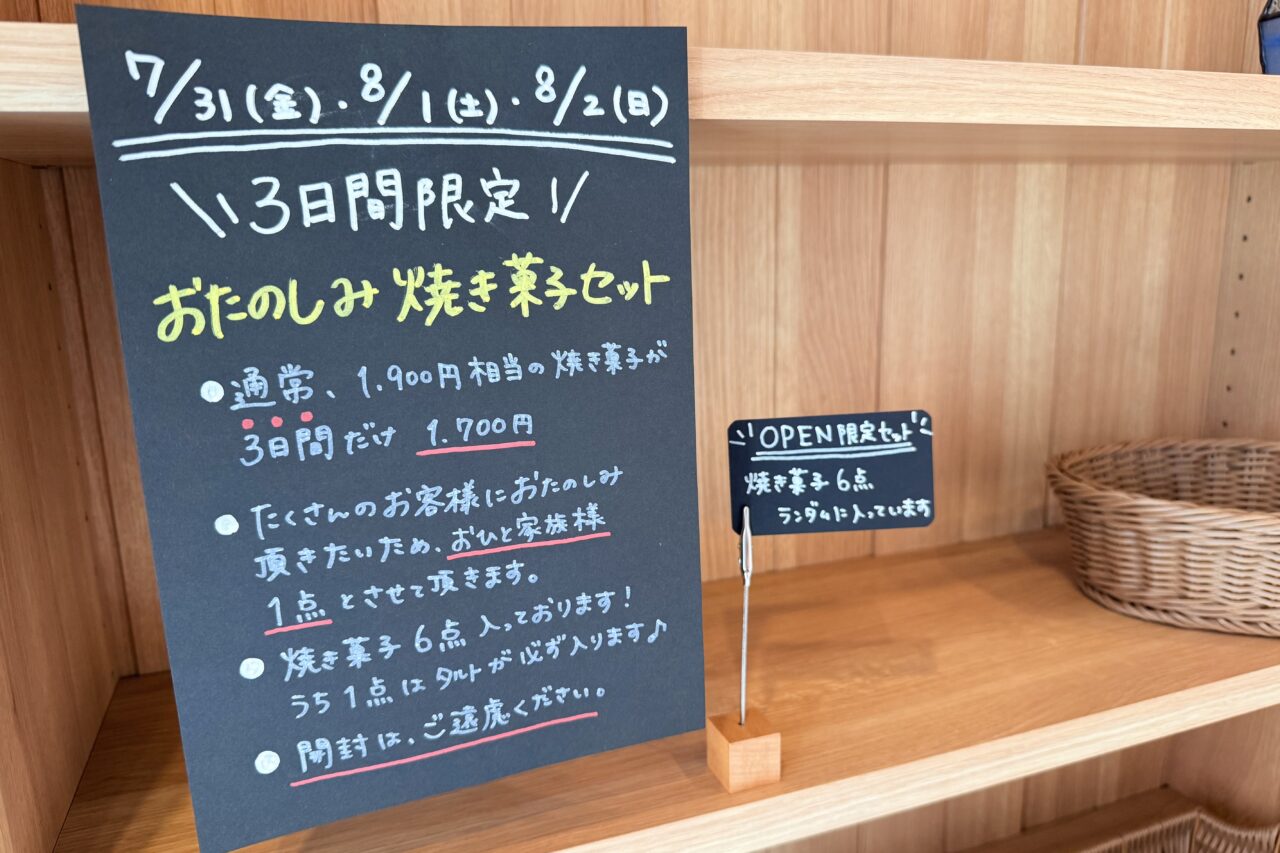 7/31(金)・8/1(土)・8/2(日)
3日間限定
おたのしみ 焼き菓子セット
● 通常、1.900円相当の焼き菓子が
3日間だけ 1.700円
● たくさんのお客様におたのしみ
頂きたいため、おひと家族様
1点とさせて頂きます。
● 焼き菓子6点入っております!
うち1点はタルトが必ず入ります♪
● 開封は、ご遠慮ください。
OPEN限定セット
焼き菓子6点
ランダムに入っています